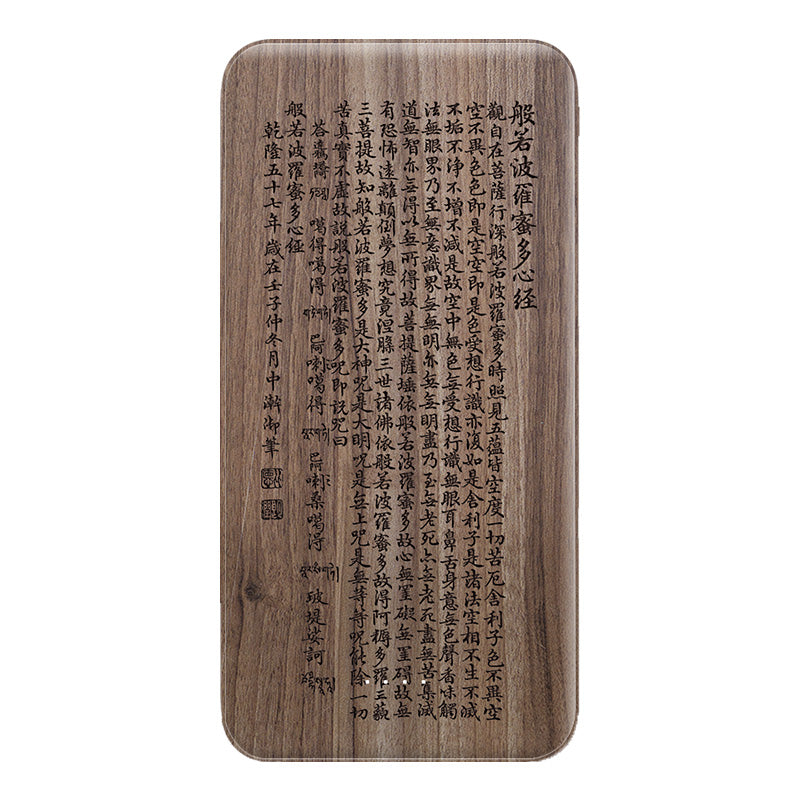 般若波羅蜜多心経
觀自在菩薩行深般若波羅蜜多時照見五蘊皆空度一切苦厄舍利子色不異空
空不異色色即是空空即是色受想行識亦復如是舍利子是諸法空相不生不滅
不垢不淨不增不減是故空中無色無受想行識無眼耳鼻舌身意無色聲香味觸
法無眼界乃至無意識界無無明亦無無明盡乃至無老死亦無老死盡無苦集滅
道無智亦無得以無所得故菩提薩埵依般若波羅蜜多故心無罣礙無罣碍故無
有恐怖遠離顛倒夢想究竟涅槃三世諸佛依般若波羅蜜多故得阿耨多羅三藐
三菩提故知般若波羅蜜多是大神呪是大明呪是無上呪是無等等呪能除一切
苦真實不虛故説般若波羅蜜多呪即説呪曰
噶得噶得 巴阿喇噶得 巴阿喇桑噶得 玻堤娑訶
般若波羅蜜多心經
乾隆五十七年歲在壬子仲冬月中澣御筆